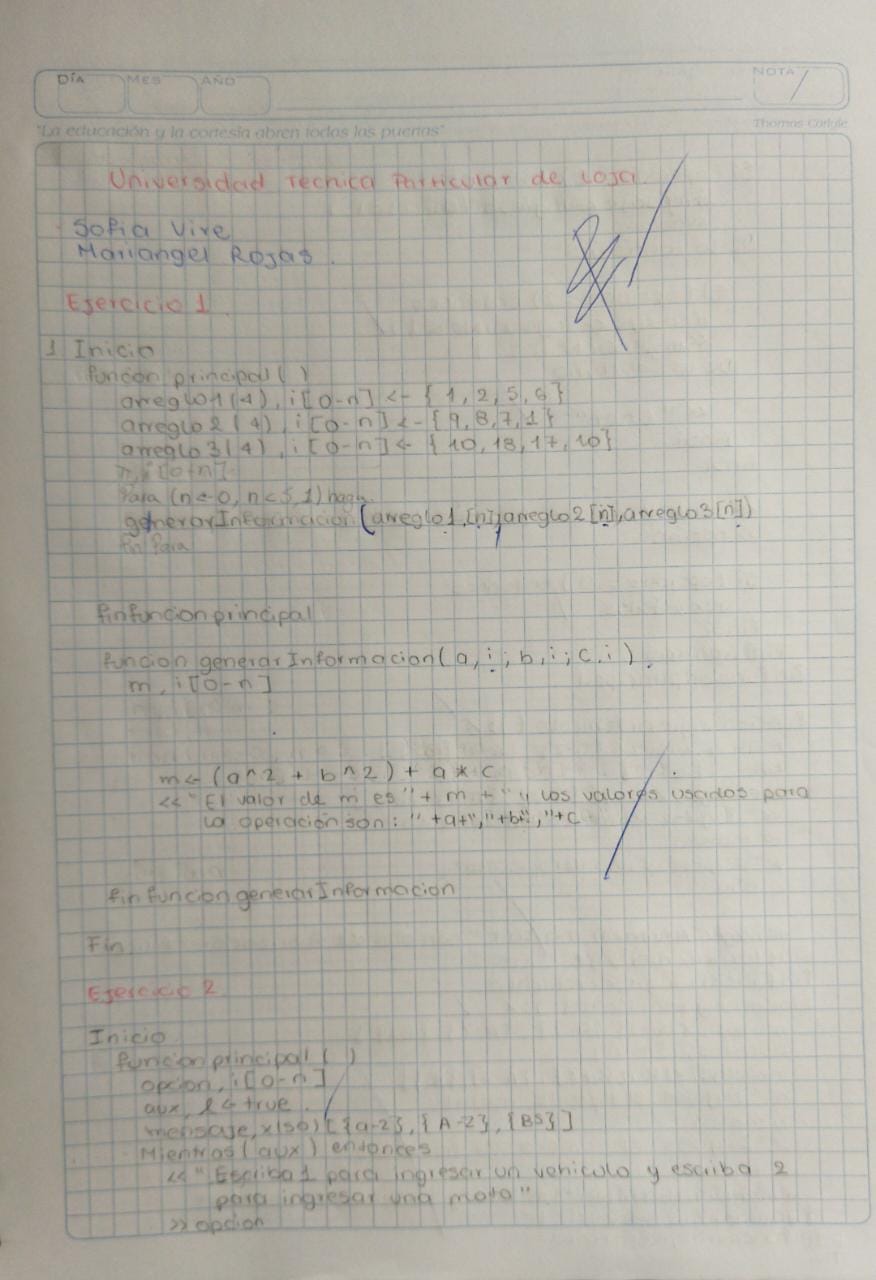 DÍA MES AÑO NOTA
"La educación y la cortesía abren todas las puertas" Thomas Carlyle
Universidad Tecnica Particular de Loja
Sofia Vire
Mariangel Rojas.
Ejercicio 1
1 Inicio
funcion principal ( )
arreglo1(4), i[0-n] <- {1, 2, 5, 6}
arreglo2(4), i[0-n] <- {9,8,7,1}
arreglo3(4), i[0-n] <- {10, 18, 17, 10}
n, i[0-n]
Para (n<-0, n<5, 1) haga
generarInformacion(arreglo1,[n],arreglo2[n],arreglo3[n])
fin Para
finfuncion principal
funcion generarInformacion(a, i; b, i; c, i).
m, i[0-n]
m<- (a^2 + b^2) + a * c
<< "El valor de m es" + m + " y los valores usados para
la operación son: " +a+","+b+","+c
fin funcion generarInformacion
Fin
Ejercicio 2
Inicio
funcion principal ( )
opcion, i[0-n]
aux, l <- true
mensaje, x(50) [{a-z}, {A-Z}, {BS}]
Mientras (aux) entonces
<< "Escriba 1 para ingresar un vehiculo y escriba 2
para ingresar una moto"
>> opcion